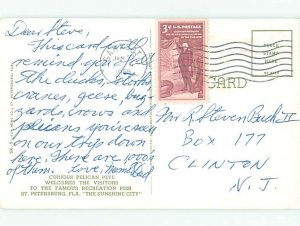 Dear Steve,
This card will
remind you of all
the ducks, storks,
cranes, geese, buz-
zards, crows and
pelicans you've seen
on our trips down
here. There are 1000s
of them. Love, Mom & Dad
CURIOUS PELICAN PETE
WELCOMES THE VISITORS
TO THE FAMOUS RECREATION PIER
ST. PETERSBURG, FLA. "THE SUNSHINE CITY"
3¢ U.S. POSTAGE
JAN
CARD
PLACE
STAMP
HERE
Mr R. Steven Buck II
BOX 177
CLINTON
N.J.